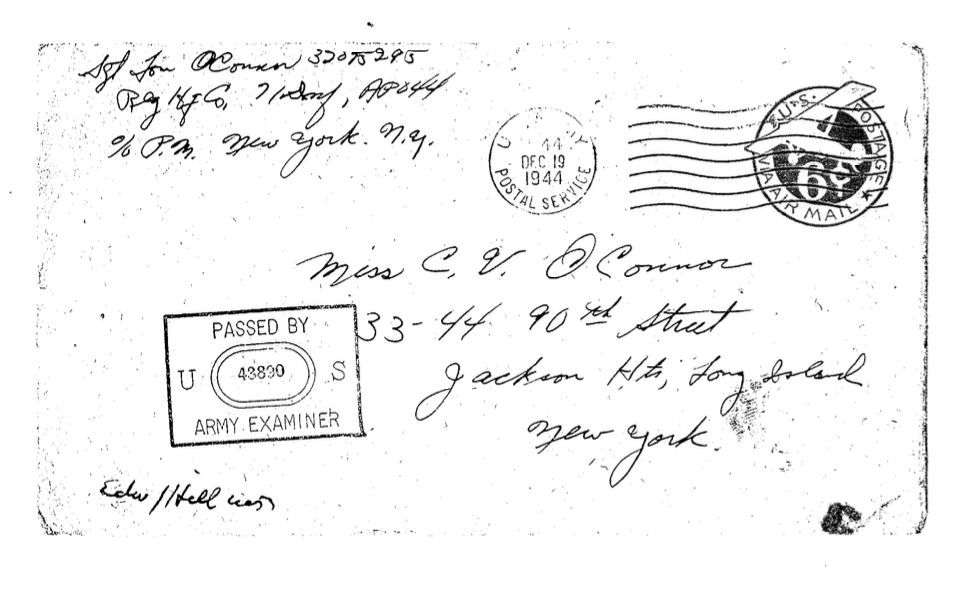 Sgt Tom O'Connor 32075295
Hq Co, 71st Inf, APO 44
c/o P.M. New York. N.Y.
U. S. ARMY
44
DEC 19
1944
POSTAL SERVICE
U.S. POSTAGE
6¢
VIA AIR MAIL
Miss C. V. O'Connor
33-44 90th Street
Jackson Hts, Long Island
New York.
PASSED BY
U 43890 S
ARMY EXAMINER